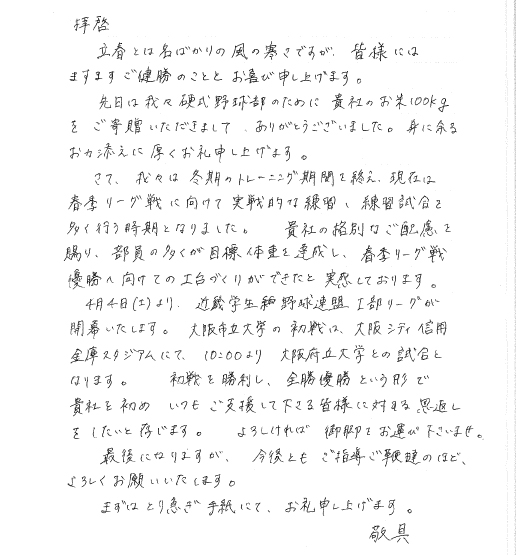 拝啓
立春とは名ばかりの風の寒さですが、皆様には
ますますご健勝のこととお喜び申し上げます。
先日は我々硬式野球部のために貴社のお米100kg
をご寄贈いただきまして、ありがとうございました。身に余る
お力添えに厚くお礼申し上げます。
さて、我々は冬期のトレーニング期間を終え、現在は
春季リーグ戦に向けて実戦的な練習、練習試合を
多く行う時期となりました。 貴社の格別なご配慮を
賜り、部員の多くが目標体重を達成し、春季リーグ戦
優勝へ向けての土台づくりができたと実感しております。
4月4日(土)より、近畿学生野球連盟Ⅰ部リーグが
開幕いたします。 大阪市立大学の初戦は、大阪シティ信用
金庫スタジアムにて、10:00より 大阪府立大学との試合と
なります。 初戦を勝利し、全勝優勝という形で
貴社を初め いつもご支援して下さる皆様に対する恩返し
をしたいと存じます。 よろしければ 御脚をお運び下さいませ。
最後になりますが、今後ともご指導ご鞭撻のほど、
よろしくお願いいたします。
まずはとり急ぎ手紙にて、お礼申し上げます。
敬具